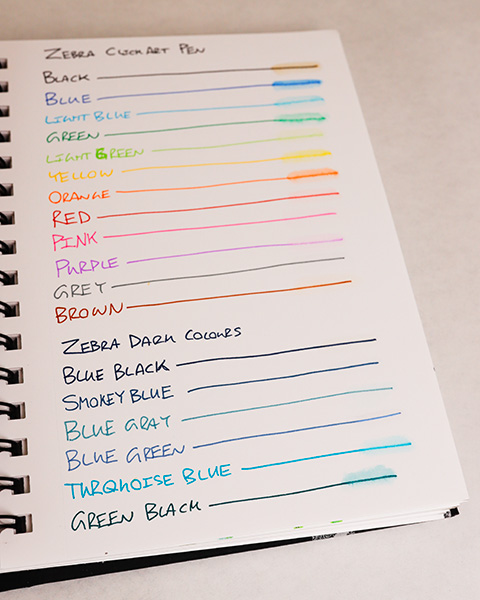 ZEBRA CLICKART PEN
BLACK
BLUE
LIGHT BLUE
GREEN
LIGHT GREEN
YELLOW
ORANGE
RED
PINK
PURPLE
GREY
BROWN
ZEBRA DARK COLOURS
BLUE BLACK
SMOKEY BLUE
BLUE GRAY
BLUE GREEN
TURQUOISE BLUE
GREEN BLACK